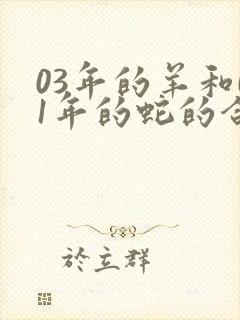 03年的羊和
1年的蛇的
於立群